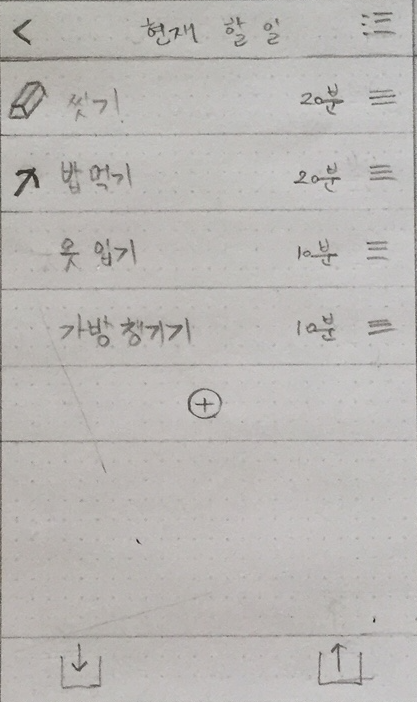 현재 할 일
씻기 20분
밥 먹기 20분
옷 입기 10분
가방 챙기기 10분